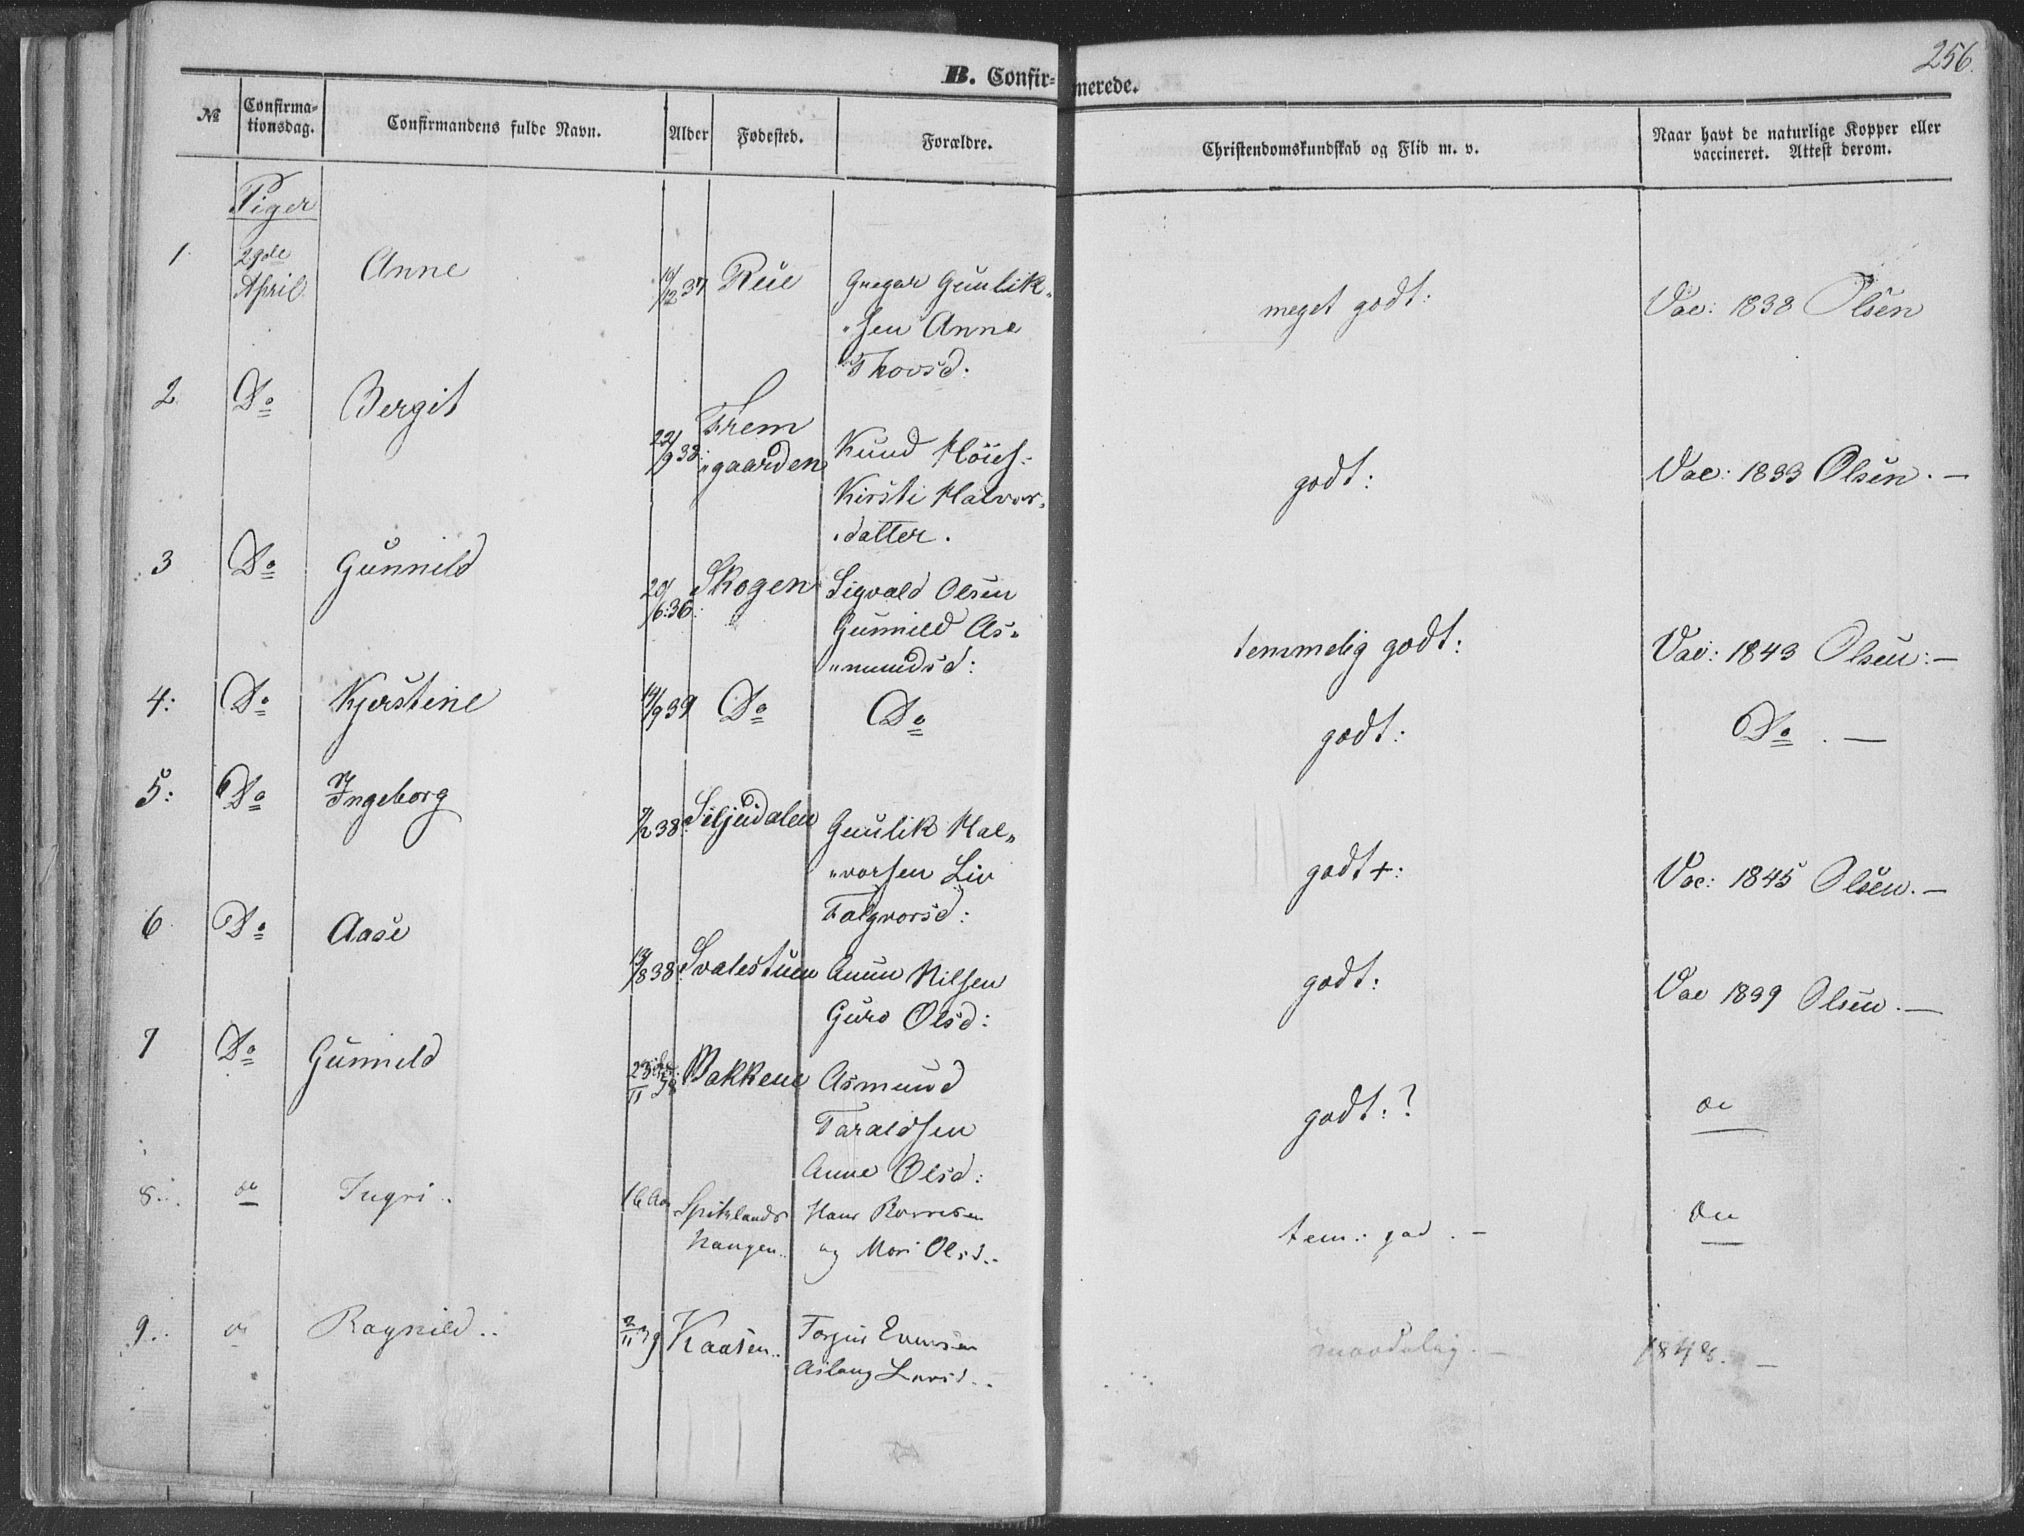 256.
B. Confirmerede.
№ Confirmationsdag. Confirmandens fulde Navn. Alder Fødested. Forældre. Christendomskundskab og Flid m. v. Naar havt de naturlige Kopper eller vaccineret. Attest derom.
Piger
1 29de April Anne 37 Rue Gregar Gunlik-
sen Anne
Thovsd. meget godt: Vac: 1838 Olsen
2 Do Bergit 22/9 38: Frem
gaarden Knud
Kirsti Halvor-
datter. godt: Vac: 1833 Olsen. —
3 Do Gunnild 20/6 36: Skogen Sigvald Olsen
Gunnild As-
mundsd: temmelig godt: Vac: 1843 Olsen: —
4: Do Kjerstine /9 39 Do Do godt: Do. —
5: Do Ingeborg 38: Siljudalen Gunlik Hal-
vorsen Liv
Talgvorsd: godt +: Vac: 1845 Olsen. —
6 Do Aase /8 38: Svalestuen Anun Nilsen
Guro Olsd: godt: Vac 1839 Olsen. —
7 Do Gunnild 23/11 38 Bakkene Asmund
Taraldsen
Anne Olsd: godt: ?
8. Ingri 16 Spitslands
haugen Hans
og Mari Olsd. tem: god. —
9. Ragnild 2/11 39 Kaasen
Aslaug maadelig. — 1848. —